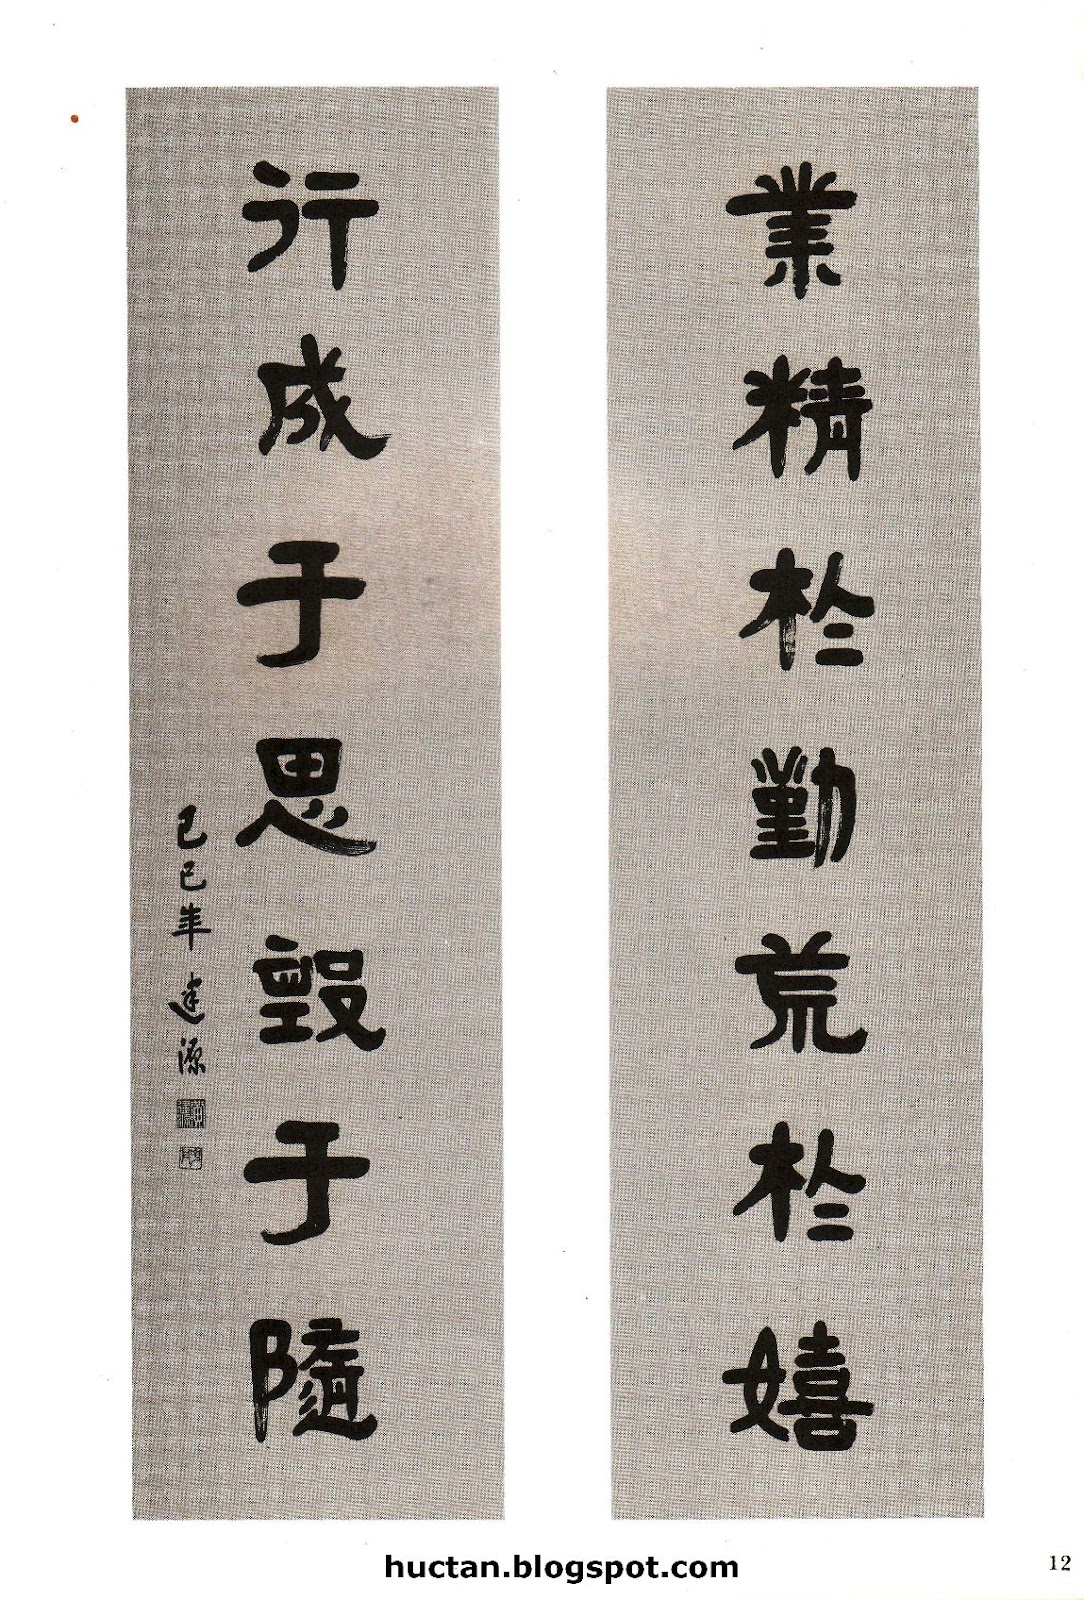 業精於勤荒於嬉
行成于思毀于隨
己巳年 達源
huctan.blogspot.com
12